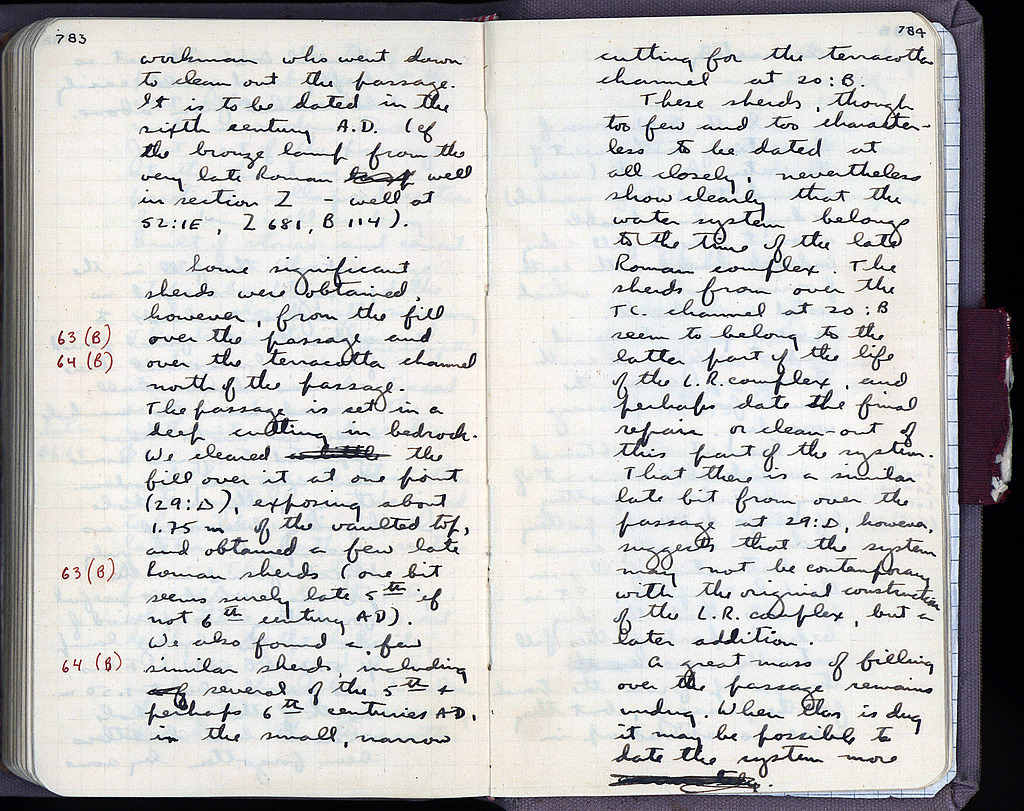 783
workman who went down
to clean out the passage.
It is to be dated in the
sixth century A.D. (cf
the bronze lamp from the
very late Roman well
in section Z - well at
52:1E, Z 681, B 114).
Some significant
sherds were obtained,
however, from the fill
63 (B) over the passage and
64 (B) over the terracotta channel
north of the passage.
The passage is set in a
deep cutting in bedrock.
We cleared the
fill over it at one point
(29:D), exposing about
1.75 m of the vaulted top,
and obtained a few late
63 (B) Roman sherds (one bit
seems surely late 5th if
not 6th century AD).
We also found a few
64 (B) similar sherds, including
several of the 5th +
perhaps 6th centuries AD,
in the small, narrow
784
cutting for the terracotta
channel at 20:B.
These sherds, though
too few and too character-
less to be dated at
all closely, nevertheless
show clearly that the
water system belongs
to the time of the late
Roman complex. The
sherds from over the
TC. channel at 20:B
seem to belong to the
latter part of the life
of the L.R. complex, and
perhaps date the final
repair or clean-out of
this part of the system.
That there is a similar
late bit from over the
passage at 29:D, however,
suggests that the system
may not be contemporary
with the original construction
of the L.R. complex, but a
later addition.
A great mass of filling
over the passage remains
undug. When this is dug
it may be possible to
date the system more